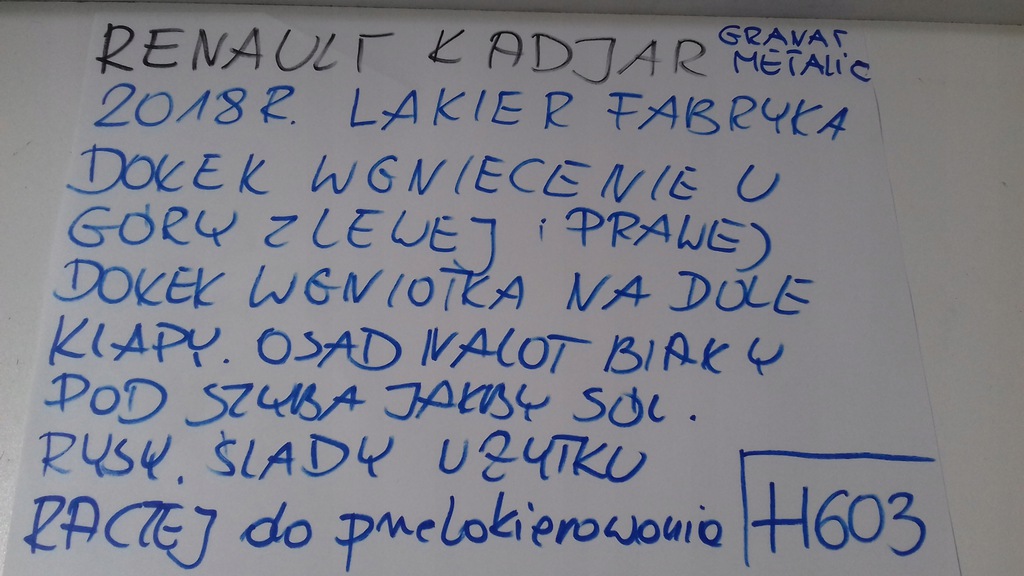 RENAULT KADJAR GRANAT METALIC
2018R. LAKIER FABRYKA
DOŁEK WGNIECENIE U
GÓRY Z LEWEJ i PRAWEJ
DOŁEK WGNIOTKA NA DOLE
KLAPY. OSAD NALOT BIAŁY
POD SZYBA JAKBY SÓL.
RYSY. ŚLADY UŻYTKU
RACZEJ do przelakierowania
H603